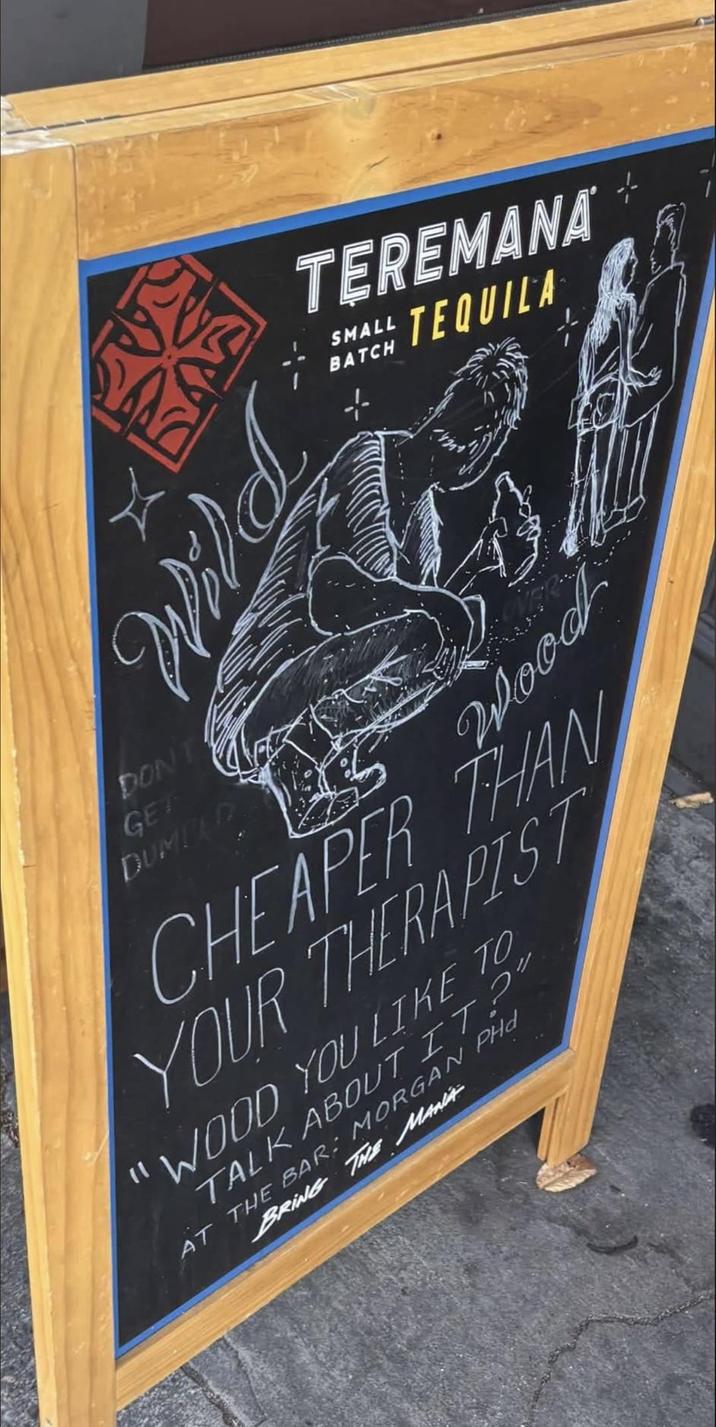 TEREMANA®
SMALL BATCH TEQUILA
Wild
OVER
Wood
DON'T
GET
DUMPED
CHEAPER THAN
YOUR THERAPIST
"WOOD YOU LIKE TO
TALK ABOUT IT?"
AT THE BAR: MORGAN PHd
BRING THE MANA